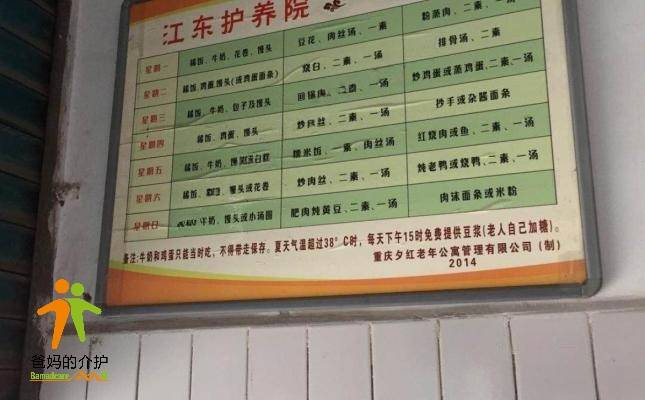 江东护养院
星期一 稀饭、牛奶、花卷、馒头 豆花、肉丝汤、一素 粉蒸肉、二素、一汤
星期二 稀饭、鸡蛋、馒头(或鸡蛋面条) 烧白、二素、一汤 排骨汤、二素
星期三 稀饭、牛奶、包子及馒头 回锅肉、二素、一汤 炒鸡蛋或蒸鸡蛋、二素、一汤
星期四 稀饭、鸡蛋、馒头 炒肉丝、二素、一汤 抄手或杂酱面条
星期五 稀饭、牛奶、馒头 糯米饭、一素、肉丝汤 红烧肉或鱼、二素、一汤
星期六 稀饭、馒头或花卷 炒肉丝、二素、一汤 炖老鸭或烧鸭、二素、一汤
星期日 牛奶、馒头或小汤圆 肥肉炖黄豆、二素、一汤 肉沫面条或米粉
备注:牛奶和鸡蛋只能当时吃、不得带走保存。夏天气温超过38°C时,每天下午15时免费提供豆浆(老人自己加糖)。
重庆夕红老年公寓管理有限公司(制)
2014
爸妈的介护
Bamadcare